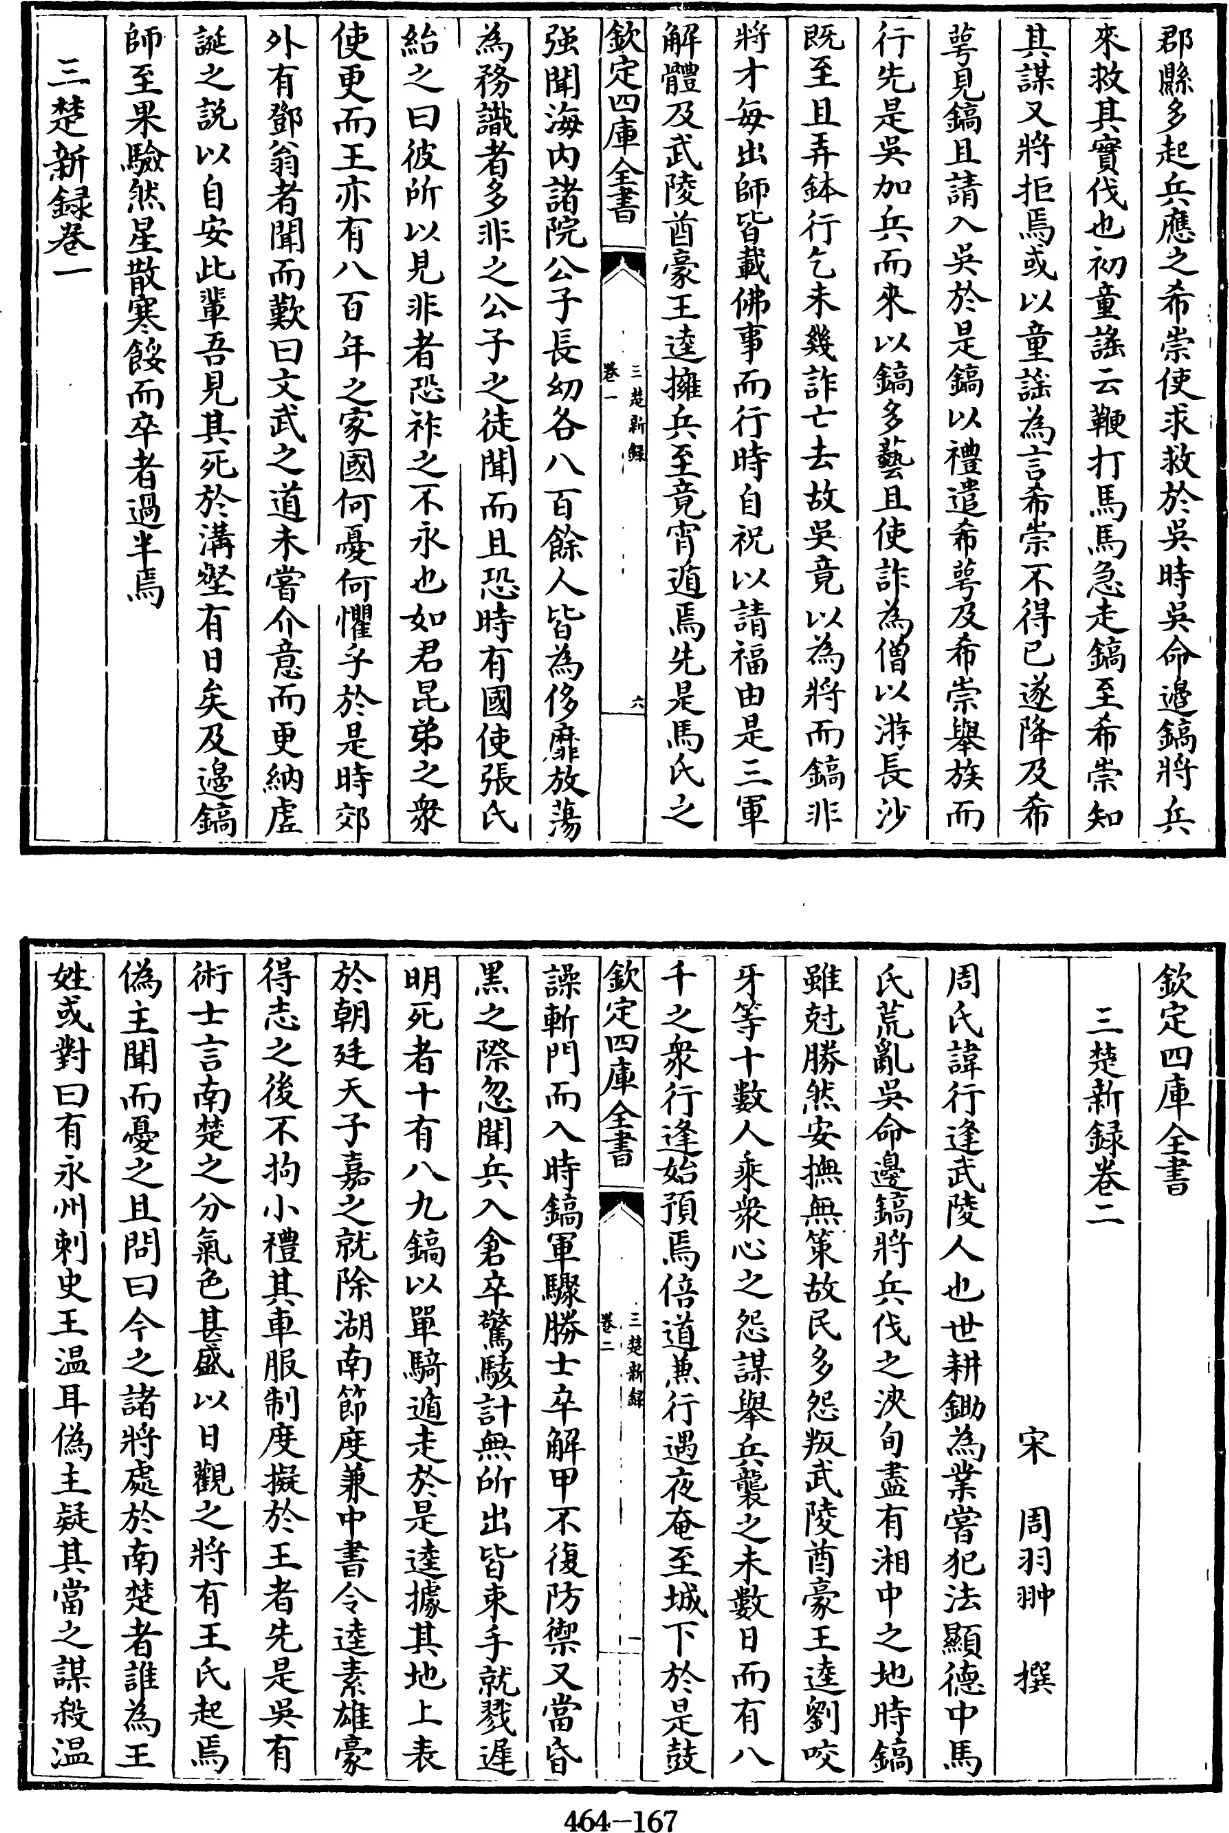 郡縣多起兵應之希崇使求救於吳時吳命邉鎬將兵
來救其實伐也初童謠云鞭打馬馬急走鎬至希崇知
其謀又將拒焉或以童謠為言希崇不得已遂降及希
萼見鎬且請入吳於是鎬以禮遣希萼及希崇舉族而
行先是吳加兵而來以鎬多藝且使詐為僧以游長沙
既至且弄鉢行乞未幾詐亡去故吳竟以為將而鎬非
將才每出師皆載佛事而行時自祝以請福由是三軍
解體及武陵酋豪王逵擁兵至竟宵遁焉先是馬氏之
欽定四庫全書
三楚新録
卷一
六
强聞海内諸院公子長幼各八百餘人皆為侈靡放蕩
為務識者多非之公子之徒聞而且恐時有國使張氏
紿之曰彼所以見非者恐祚之不永也如君昆弟之衆
使更而王亦有八百年之家國何憂何懼乎於是時郊
外有鄧翁者聞而歎曰文武之道未嘗介意而更納虛
誕之説以自安此輩吾見其死於溝壑有日矣及邉鎬
師至果驗然星散寒餒而卒者過半焉
三楚新録卷一
欽定四庫全書
三楚新録卷二
宋 周羽翀 撰
周氏諱行逢武陵人也世耕鋤為業嘗犯法顯德中馬
氏荒亂吳命邉鎬將兵伐之浹旬盡有湘中之地時鎬
雖尅勝然安撫無策故民多怨叛武陵酋豪王逵劉咬
牙等十數人乘衆心之怨謀舉兵襲之未數日而有八
千之衆行逢始預焉倍道兼行遇夜奄至城下於是鼓
欽定四庫全書
三楚新録
卷二
一
譟斬門而入時鎬軍驟勝士卒解甲不復防禦又當昏
黑之際忽聞兵入倉卒驚駭計無所出皆束手就戮遲
明死者十有八九鎬以單騎遁走於是逵據其地上表
於朝廷天子嘉之就除湖南節度兼中書令逵素雄豪
得志之後不拘小禮其車服制度擬於王者先是吳有
術士言南楚之分氣色甚盛以日觀之將有王氏起焉
偽主聞而憂之且問曰今之諸將處於南楚者誰為王
姓或對曰有永州刺史王温耳偽主疑其當之謀殺温
464-167